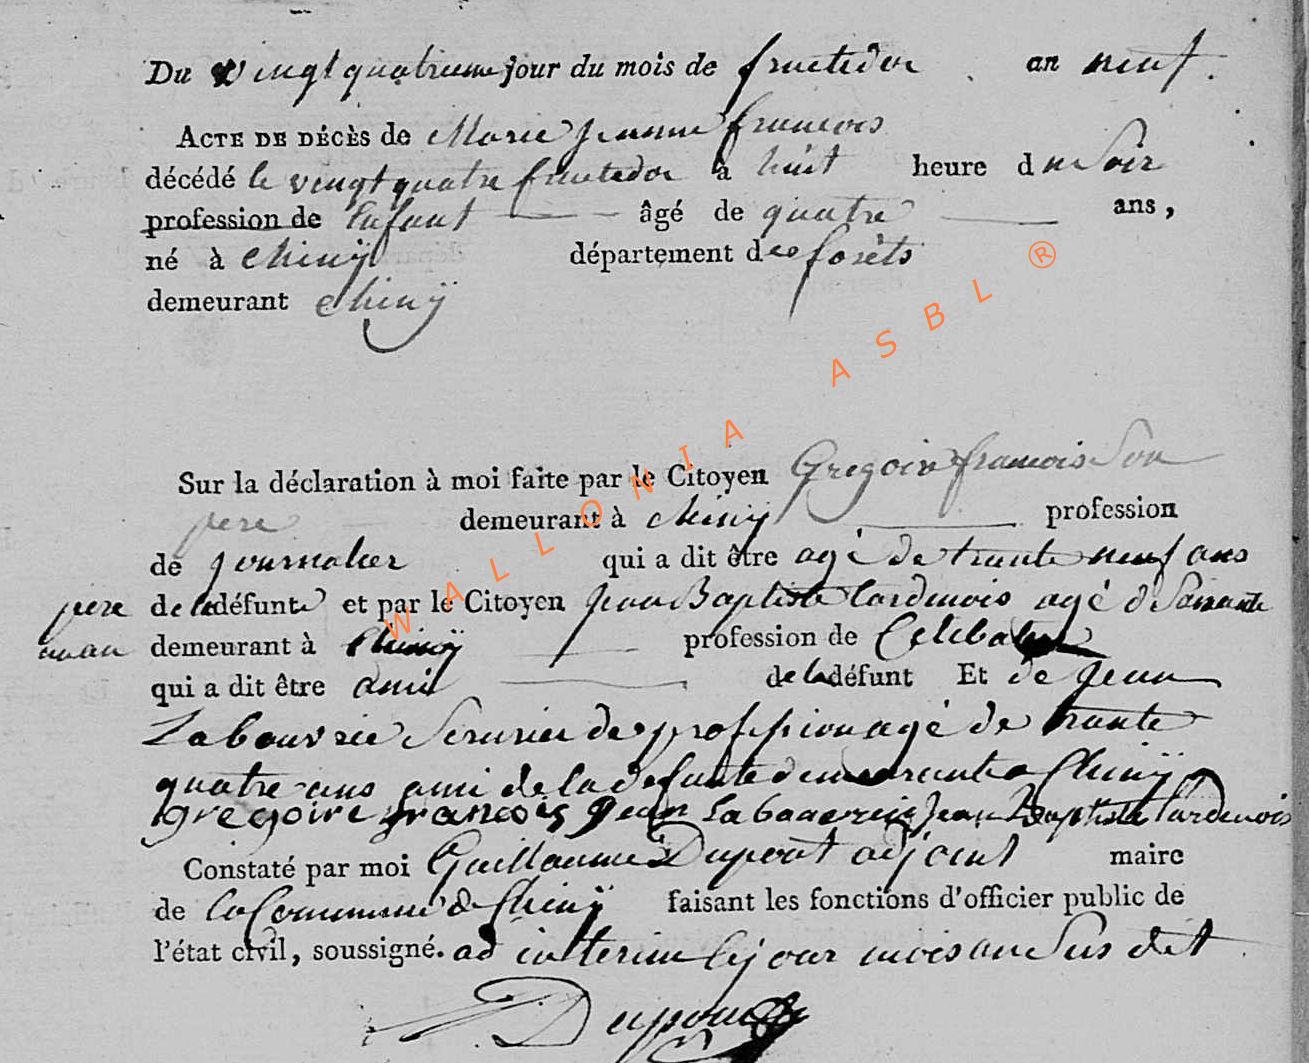 Du vingt quatrieme jour du mois de fructidor an neuf.
ACTE DE DÉCÈS de Marie Jeanne francois
décédé le vingt quatre fructidor à huit heure du Soir
profession de Enfant âgé de quatre ans,
né à chinÿ département des forêts
demeurant chinÿ
Sur la déclaration à moi faite par le Citoyen Gregoire francois Son
pere demeurant à chiny profession
de journalier qui a dit être agé de trante neuf ans
pere de la défunte et par le Citoyen jean Baptiste Lardenois agé d Soixante
un an demeurant à Chinÿ profession de Celebataire
qui a dit être ami de la défunt Et de jean
Labouverie Serurier de profession agé de trante
quatre ans ami de la defunte demeurant a Chinÿ
gregoire francois Jean Labouverie Jean Baptiste Lardenois
Constaté par moi Guillaume Dupont adjoint maire
de la Commune de Chinÿ faisant les fonctions d'officier public de
l'état civil, soussigné. ad interim le jour mois an Sus dit
Dupont
WALLONIA ASBL ®